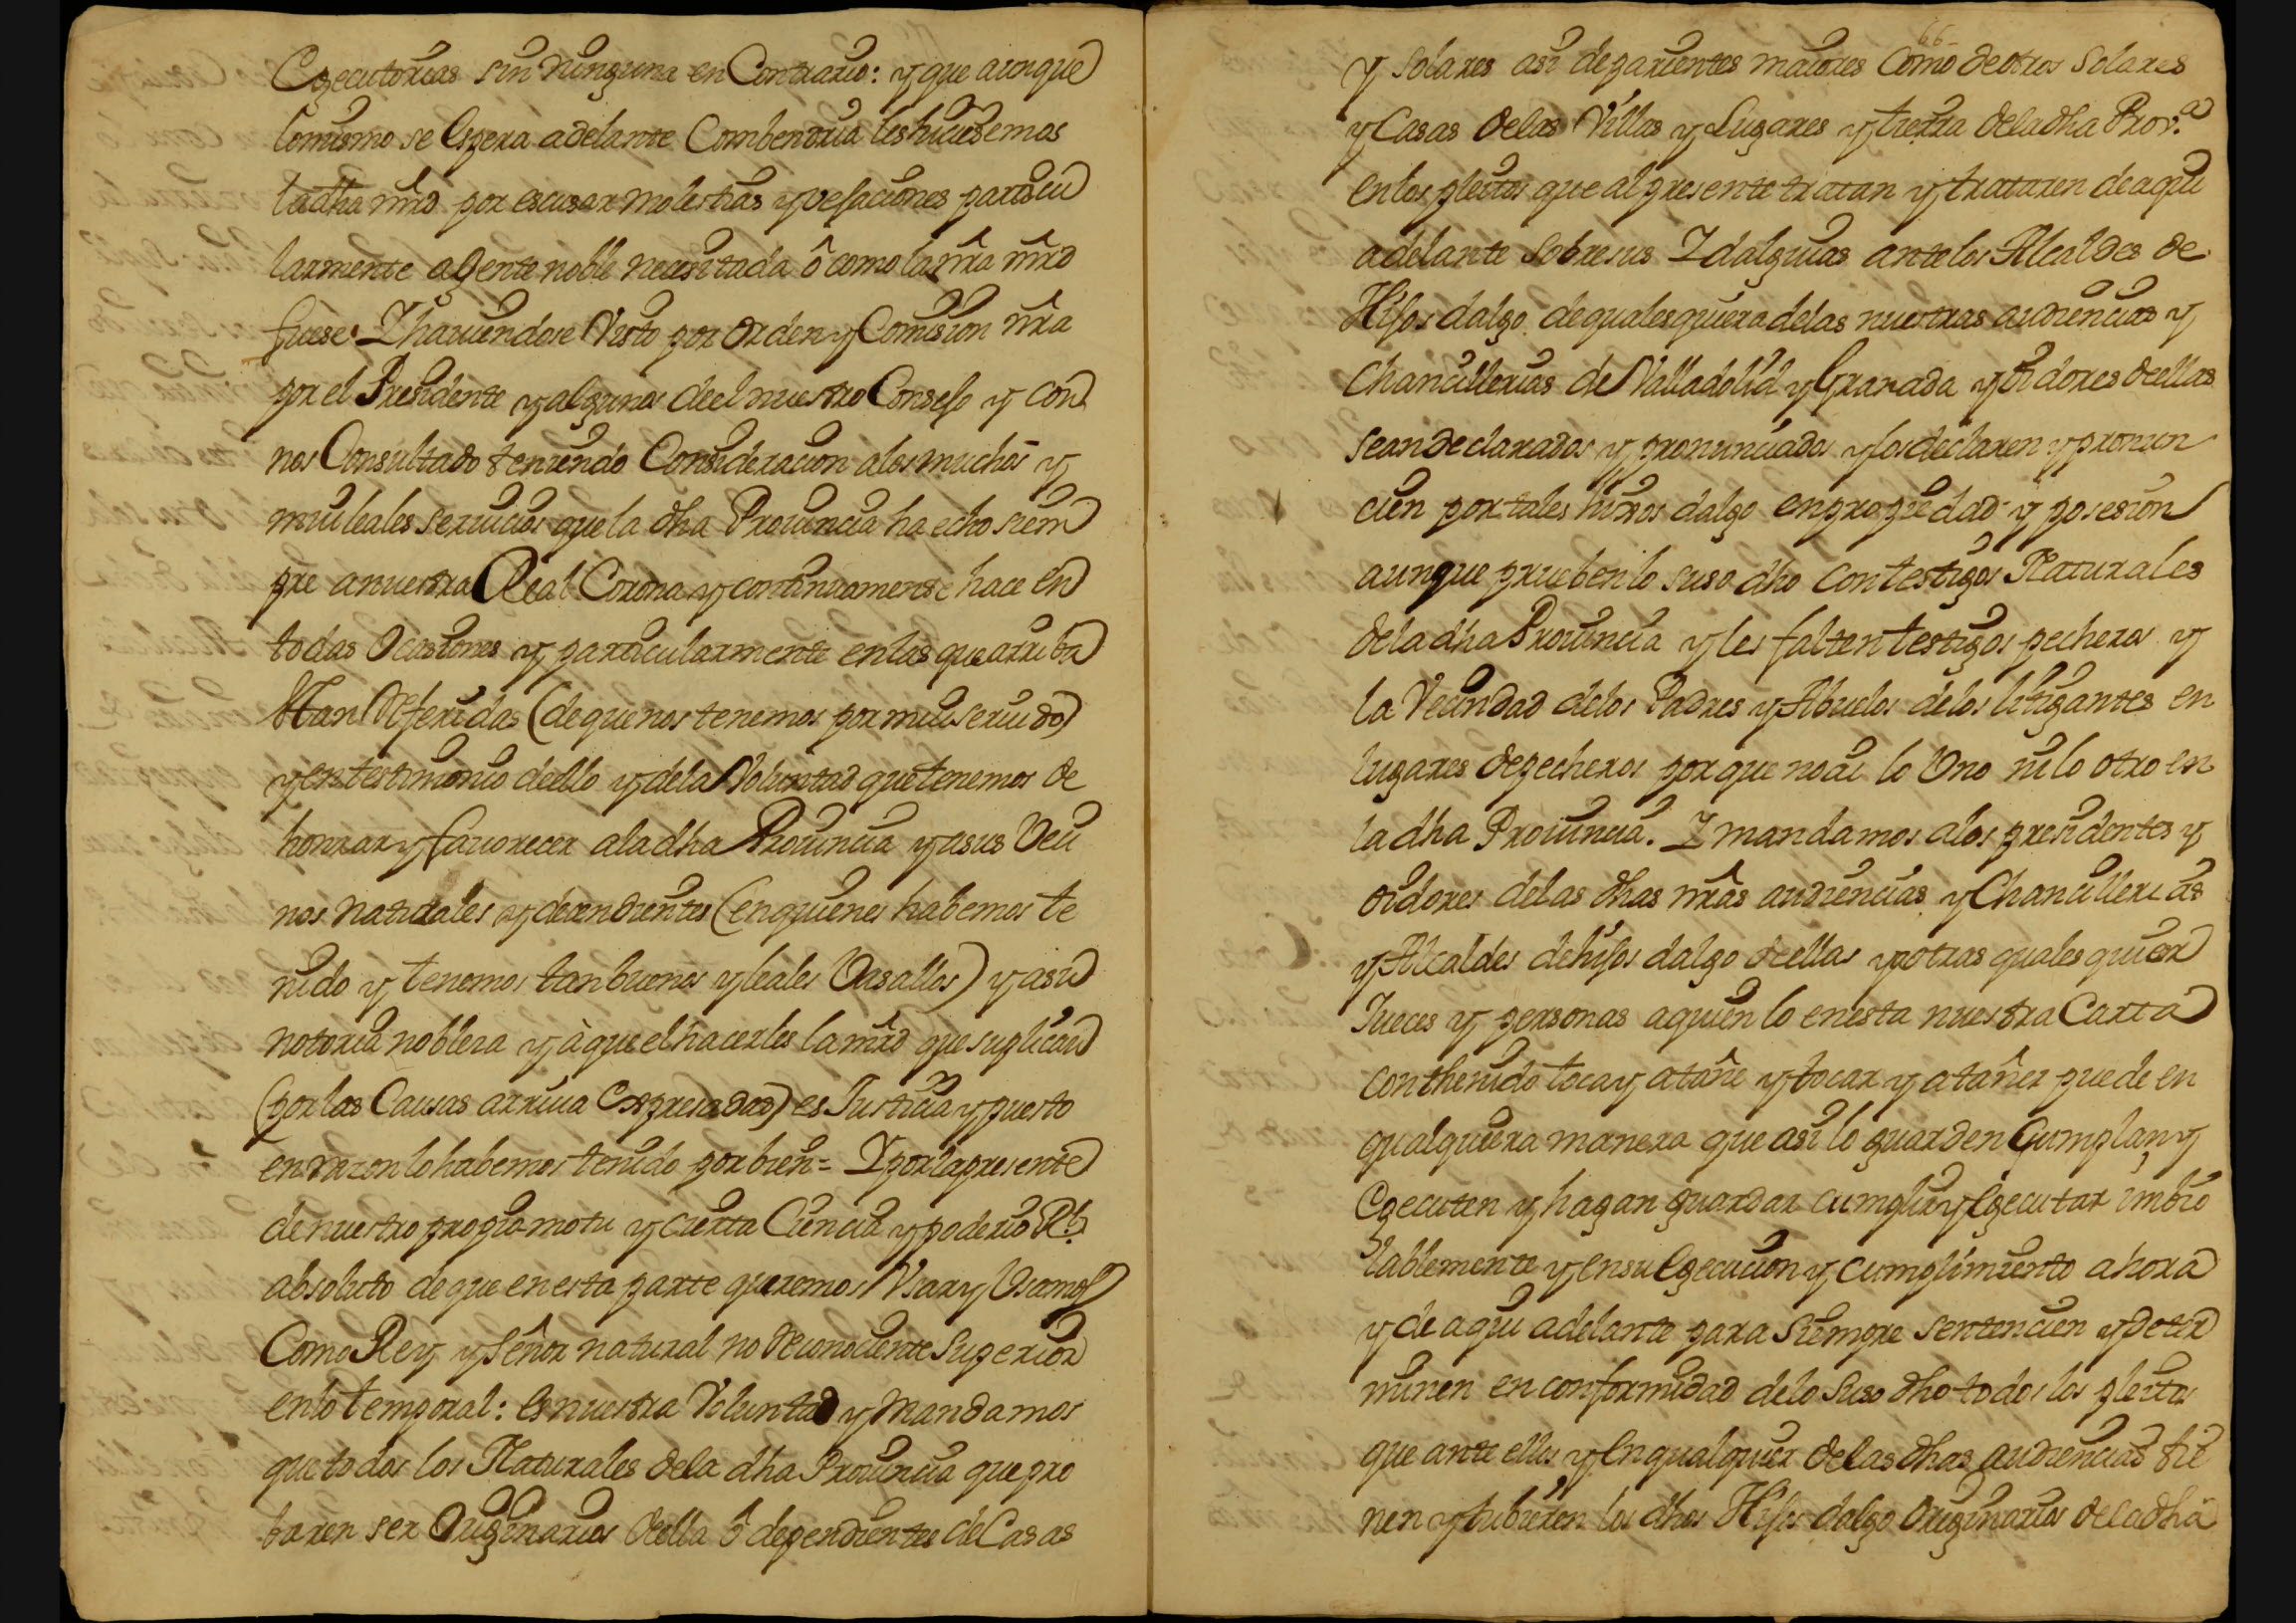 Egecutorias sin ninguna en Contrario: y que aunque
lo mismo se espera adelante Combendria les hiciesemos
la dha mrd por escusar molestias y vesaciones particu
larmente a gente noble necesitada ô como la nrâ mrd
fuese. Y haviendose Visto por orden y Comision nrâ
por el Presidente y algunos de el nuestro Consejo y con
nos Consultado teniendo Consideracion a los muchos y
mui leales servicios que la dha Provincia ha echo siem
pre a nuestra Real Corona y continuamente hace en
todas Ocasiones y particularmente en las que arriba
Van Referidas (de que nos tenemos por mui servido)
y en testimonio de ello y de la Voluntad que tenemos de
honrrar y favorecer a la dha Provincia y a sus Veci
nos naturales y decendientes (en quienes habemos te
nido y tenemos tan buenos y leales Vasallos) y a su
notoria nobleza y à que el hacerles la mrd que suplican
(por las Causas arriva Espresadas) es Justicia y puesto
en razon lo habemos tenido por bien = Y por la presente
de nuestro propio motu y cierta Ciencia y poderio Rl.
absoluto de que en esta parte queremos Vsar y Vsamos
Como Rey y Señor natural no Reconociente Superior
en lo temporal: es nuestra Voluntad y Mandamos
que todos los Naturales de la dha Provincia que pro
baren ser Originarios de ella ô dependientes de Casas
66
y Solares asi de parientes maiores Como de otros Solares
y Casas de las Villas y Lugares y tierra de la dha Prov.a
en los pleitos que al presente tratan y trataren de aqui
adelante Sobre sus Idalguias ante los Alcaldes de
Hijos dalgo de qualesquiera de las nuestras audiencias y
Chancillerias de Valladolid y Granada y oidores de ellas
sean declarados y pronunciados y los declaren y pronun
cien por tales hixos dalgo en propiedad y posesion
aunque prueben lo suso dho con testigos Naturales
de la dha Provincia y les falten testigos pecheros y
la Vecindad de los Padres y Abuelos de los litigantes en
lugares de pecheros por que no ai lo Uno ni lo otro en
la dha Provincia. Y mandamos a los presidentes y
oidores de las dhas nrâs audiencias y Chancillerias
y Alcaldes de hijos dalgo de ellas y otras quales quier
Jueces y personas a quien lo en esta nuestra Carta
conthenido toca y atañe y tocar y atañer puede en
qualquiera manera que asi lo guarden Cumplan y
Egecuten y hagan guardar cumplir y Egecutar imbio
lablemente y en su Egecucion y cumplimiento ahora
y de aqui adelante para siempre sentencien y deter
minen en conformidad de lo Suso dho todos los pleitos
que ante ellos y en qualquier de las dhas audiencias tie
nen y tubieren los dhos Hijos dalgo Originarios de la dha